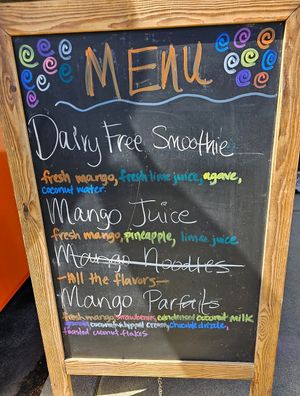 MENU
Dairy Free Smoothie
fresh mango, fresh lime juice, agave,
coconut water.
Mango Juice
fresh mango, pineapple, lime juice
Mango Noodles
-All the flavors-
Mango Parfaits
fresh mango, strawberries, condensed coconut milk
coconut whipped cream, chocolate drizzle,
toasted coconut flakes